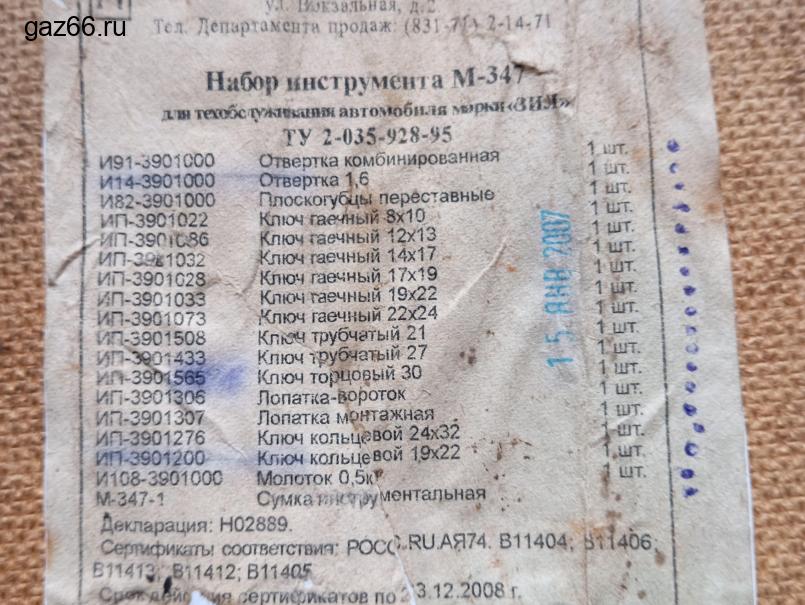 gaz66.ru
ул. Вокзальная, д.2
Тел. Департамента продаж: (831-71) 2-14-71
Набор инструмента М-347
для техобслуживания автомобиля марки «ЗИЛ»
ТУ 2-035-928-95
И91-3901000 Отвертка комбинированная 1 шт.
И14-3901000 Отвертка 1,6 1 шт.
И82-3901000 Плоскогубцы переставные 1 шт.
ИП-3901022 Ключ гаечный 8х10 1 шт.
ИП-3901086 Ключ гаечный 12х13 1 шт.
ИП-3901032 Ключ гаечный 14х17 1 шт.
ИП-3901028 Ключ гаечный 17х19 1 шт.
ИП-3901033 Ключ гаечный 19х22 1 шт.
ИП-3901073 Ключ гаечный 22х24 1 шт.
ИП-3901508 Ключ трубчатый 21 1 шт.
ИП-3901433 Ключ трубчатый 27 1 шт.
ИП-3901565 Ключ торцовый 30 1 шт.
ИП-3901306 Лопатка-вороток 1 шт.
ИП-3901307 Лопатка монтажная 1 шт.
ИП-3901276 Ключ кольцевой 24х32 1 шт.
ИП-3901200 Ключ кольцевой 19х22 1 шт.
И108-3901000 Молоток 0,5к 1 шт.
М-347-1 Сумка инструментальная
15 ЯНВ 2007
Декларация: Н02889.
Сертификаты соответствия: РОСС.RU.АЯ74. В11404; В11406;
В11413; В11412; В11405
Срок действия сертификатов по 23.12.2008 г.